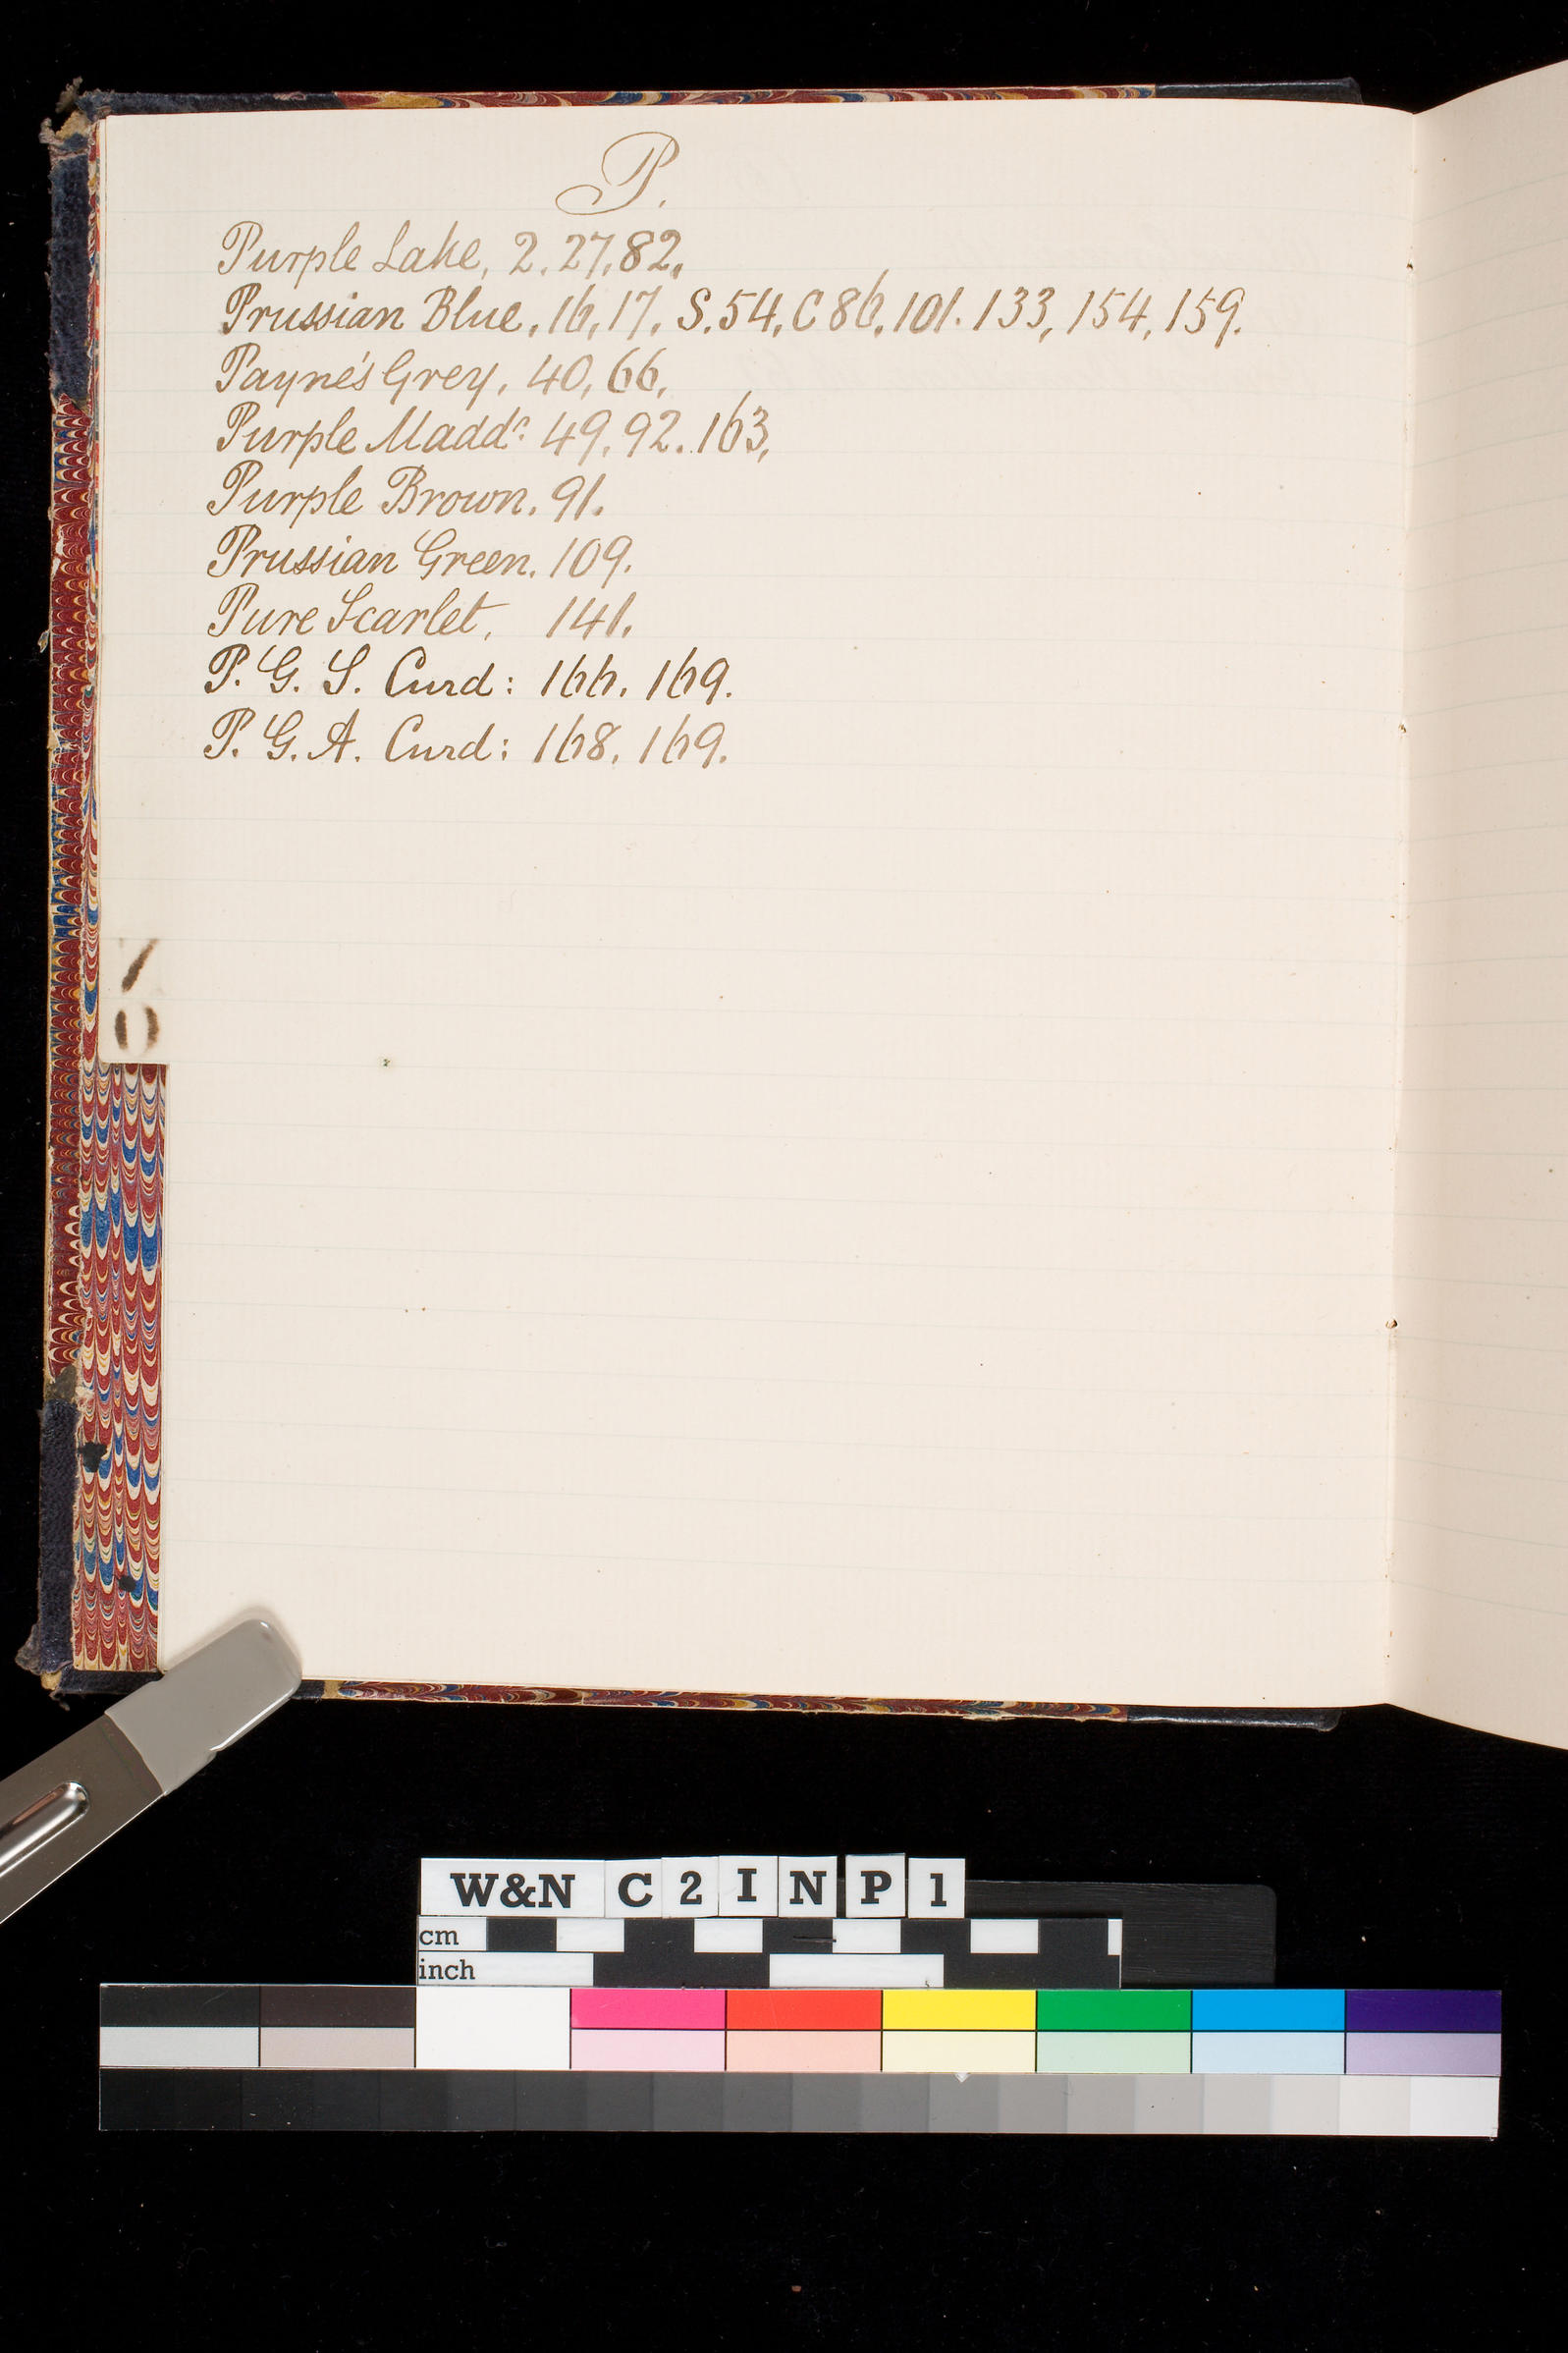 P.
Purple Lake, 2. 27. 82.
Prussian Blue. 16, 17. S. 54. C 86. 101. 133, 154, 159.
Payne's Grey. 40, 66.
Purple Maddr. 49. 92. 163,
Purple Brown. 91.
Prussian Green. 109.
Pure Scarlet, 141.
P. G. S. Curd: 166. 169.
P. G. A. Curd: 168. 169.
W&N C 2 I N P 1
cm
inch